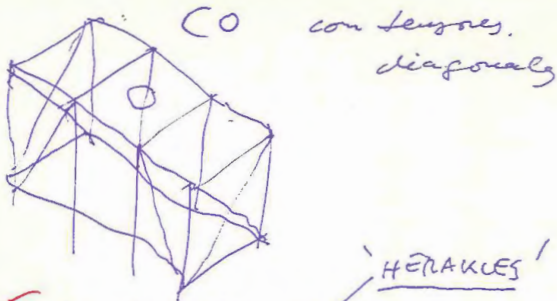 CO con tensores.
diagonales
'HERAKLES'